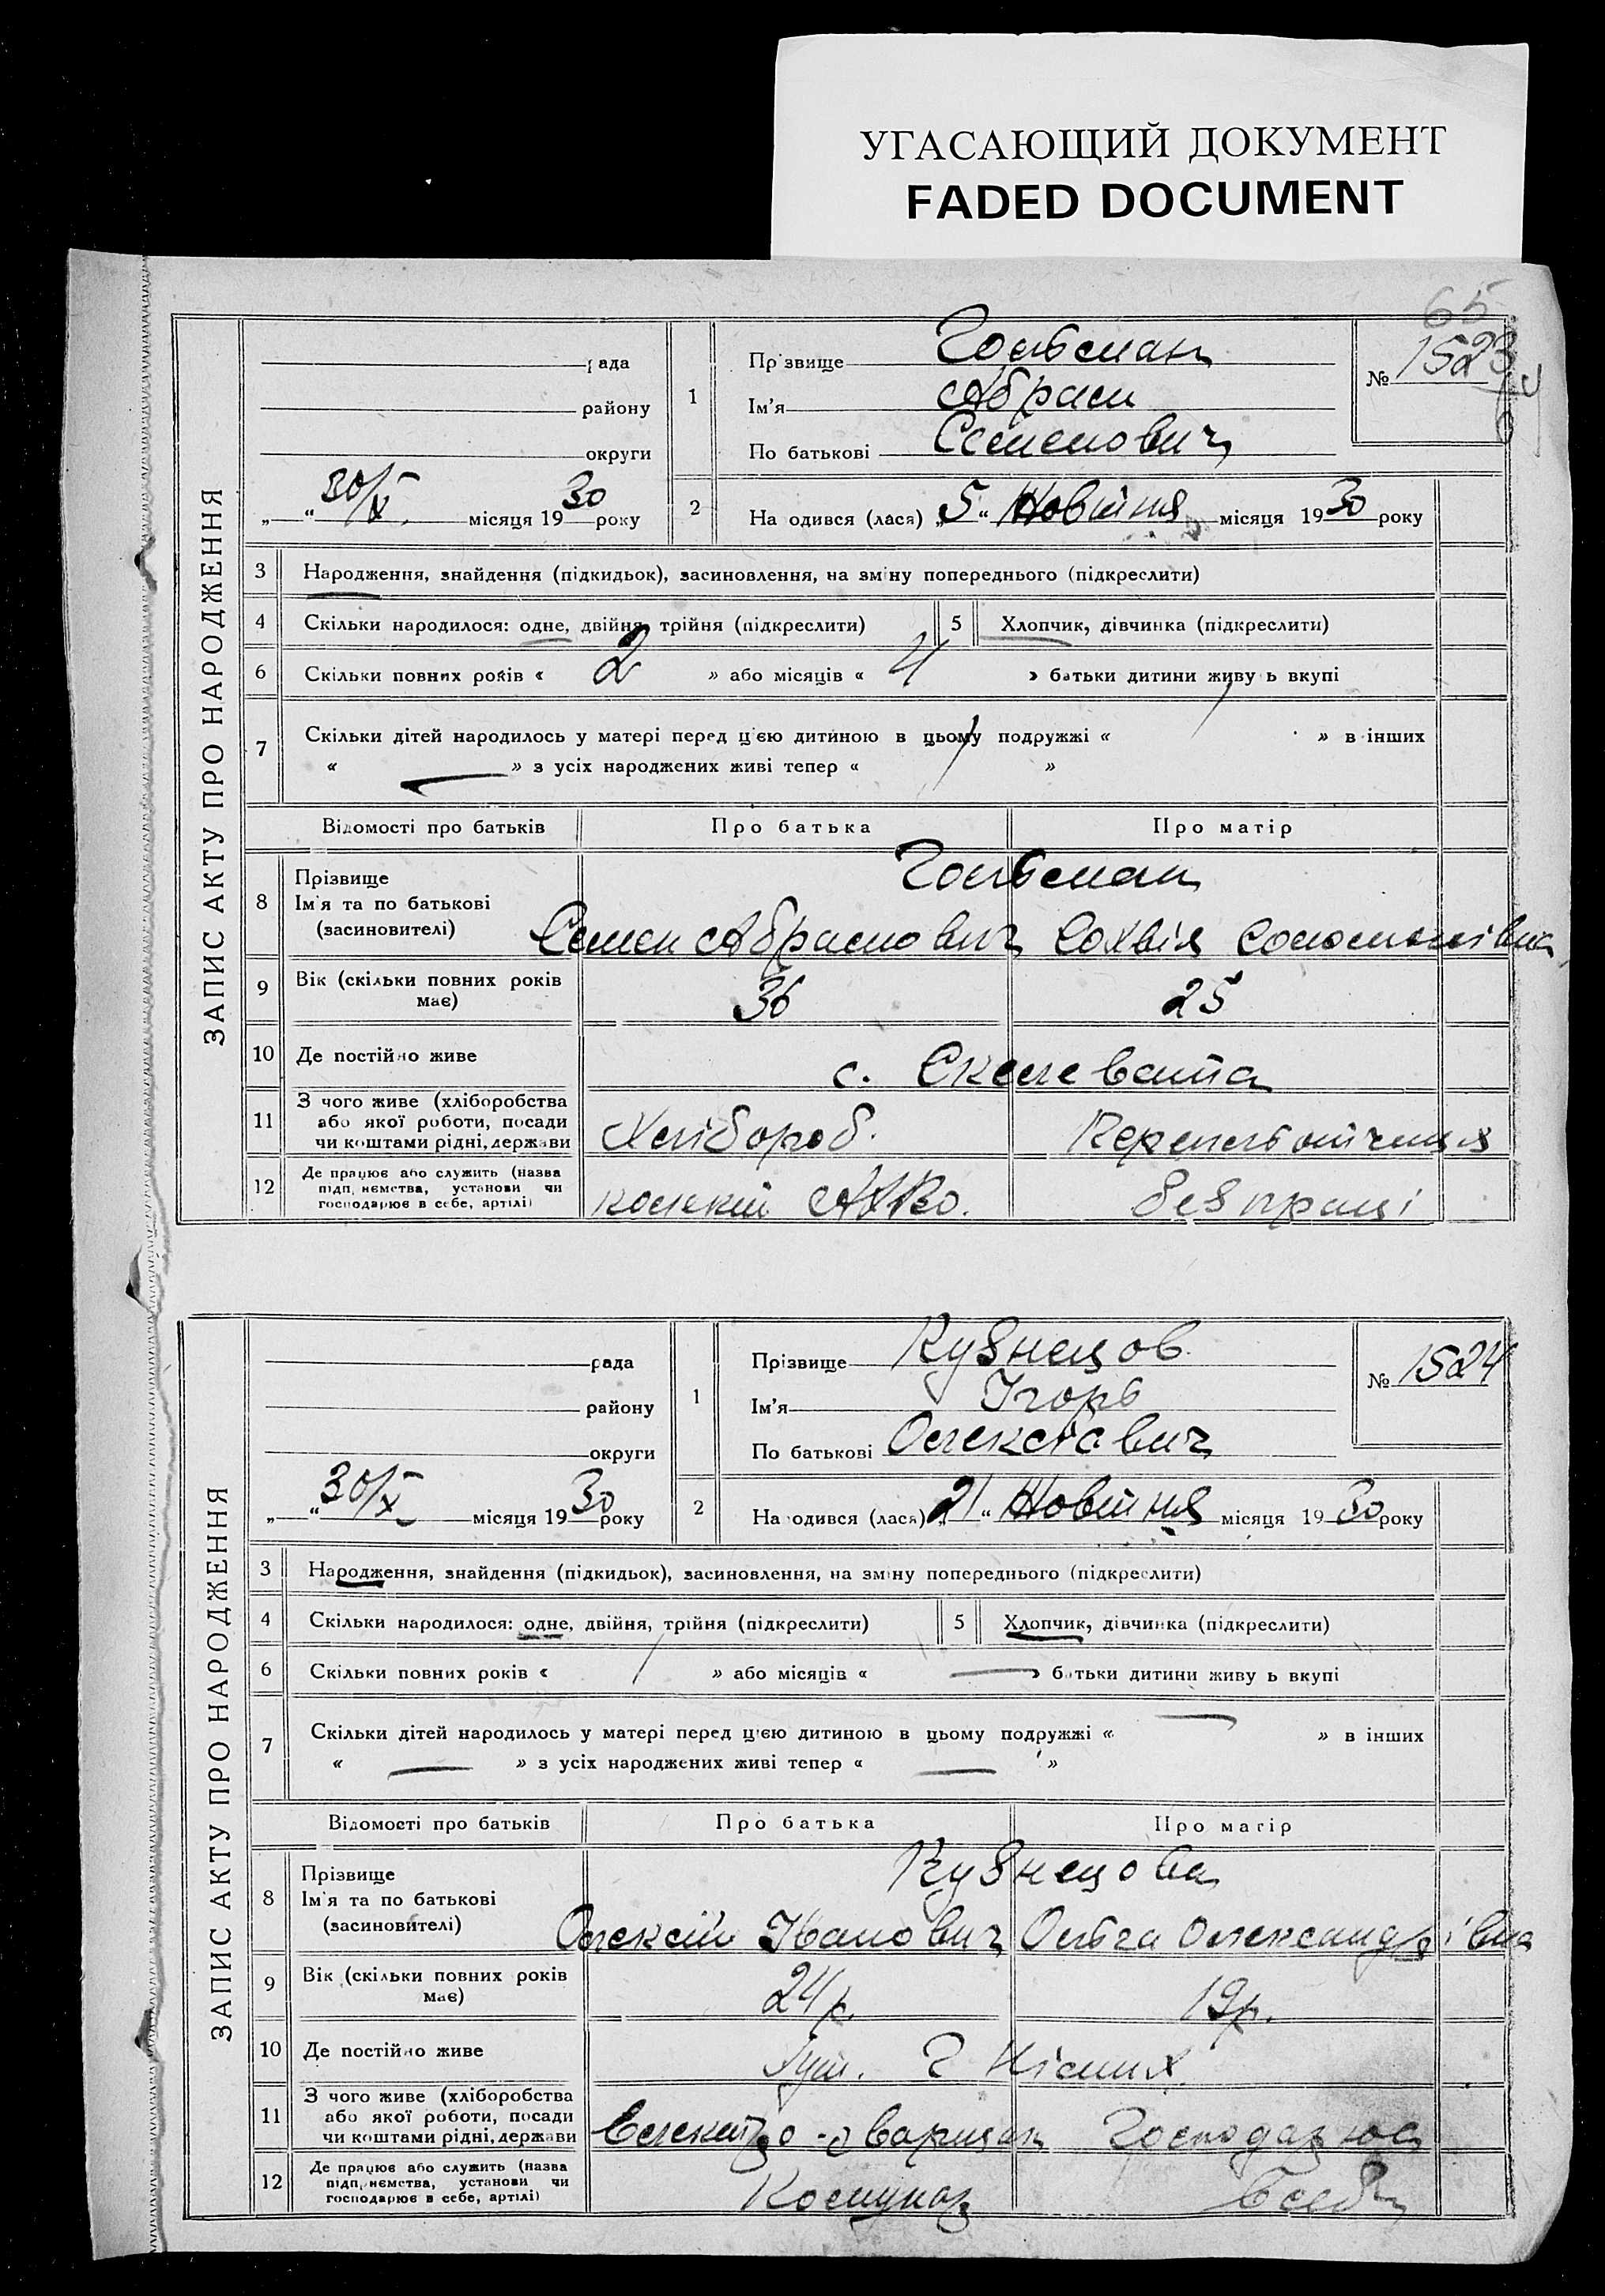 УГАСАЮЩИЙ ДОКУМЕНТ
FADED DOCUMENT
65
ЗАПИС АКТУ ПРО НАРОДЖЕННЯ
рада
району
округи
30/X місяця 1930 року
1 Прізвище Гольбман
Ім'я Абрам
По батькові Семенович
№ 1523
2 Народився (лася) „5“ Жовтня місяця 1930 року
3 Народження, знайдення (підкидьок), засиновлення, на зміну попереднього (підкреслити)
4 Скільки народилося: одне, двійня, трійня (підкреслити) 5 Хлопчик, дівчинка (підкреслити)
6 Скільки повних років « 2 » або місяців « 4 » батьки дитини живуть вкупі
7 Скільки дітей народилось у матері перед цією дитиною в цьому подружжі « » в інших
« — » з усіх народжених живі тепер « »
Відомості про батьків Про батька Про матір
8 Прізвище
Ім'я та по батькові
(засиновителі)
Гольбман
Семен Абрамович Сохвія Соломонівна
9 Вік (скільки повних років має) 36 25
10 Де постійно живе с. Скелевата
11 З чого живе (хліборобства
або якої роботи, посади
чи коштами рідні, держави
Хлібороб.
12 Де працює або служить (назва
підприємства, установи чи
господарює в себе, артілі)
без праці
ЗАПИС АКТУ ПРО НАРОДЖЕННЯ
рада
району
округи
30/X місяця 1930 року
1 Прізвище Кузнецов
Ім'я Ігорь
По батькові Олексієвич
№ 1524
2 Народився (лася) „21“ Жовтня місяця 1930 року
3 Народження, знайдення (підкидьок), засиновлення, на зміну попереднього (підкреслити)
4 Скільки народилося: одне, двійня, трійня (підкреслити) 5 Хлопчик, дівчинка (підкреслити)
6 Скільки повних років « 1 » або місяців « — » батьки дитини живуть вкупі
7 Скільки дітей народилось у матері перед цією дитиною в цьому подружжі « — » в інших
« — » з усіх народжених живі тепер « — »
Відомості про батьків Про батька Про матір
8 Прізвище
Ім'я та по батькові
(засиновителі)
Кузнецови
Олексій Іванович Ольга Олександрівна
9 Вік (скільки повних років має) 24 р. 19 р.
10 Де постійно живе
11 З чого живе (хліборобства
або якої роботи, посади
чи коштами рідні, держави
Електро-зварщик
12 Де працює або служить (назва
підприємства, установи чи
господарює в себе, артілі)